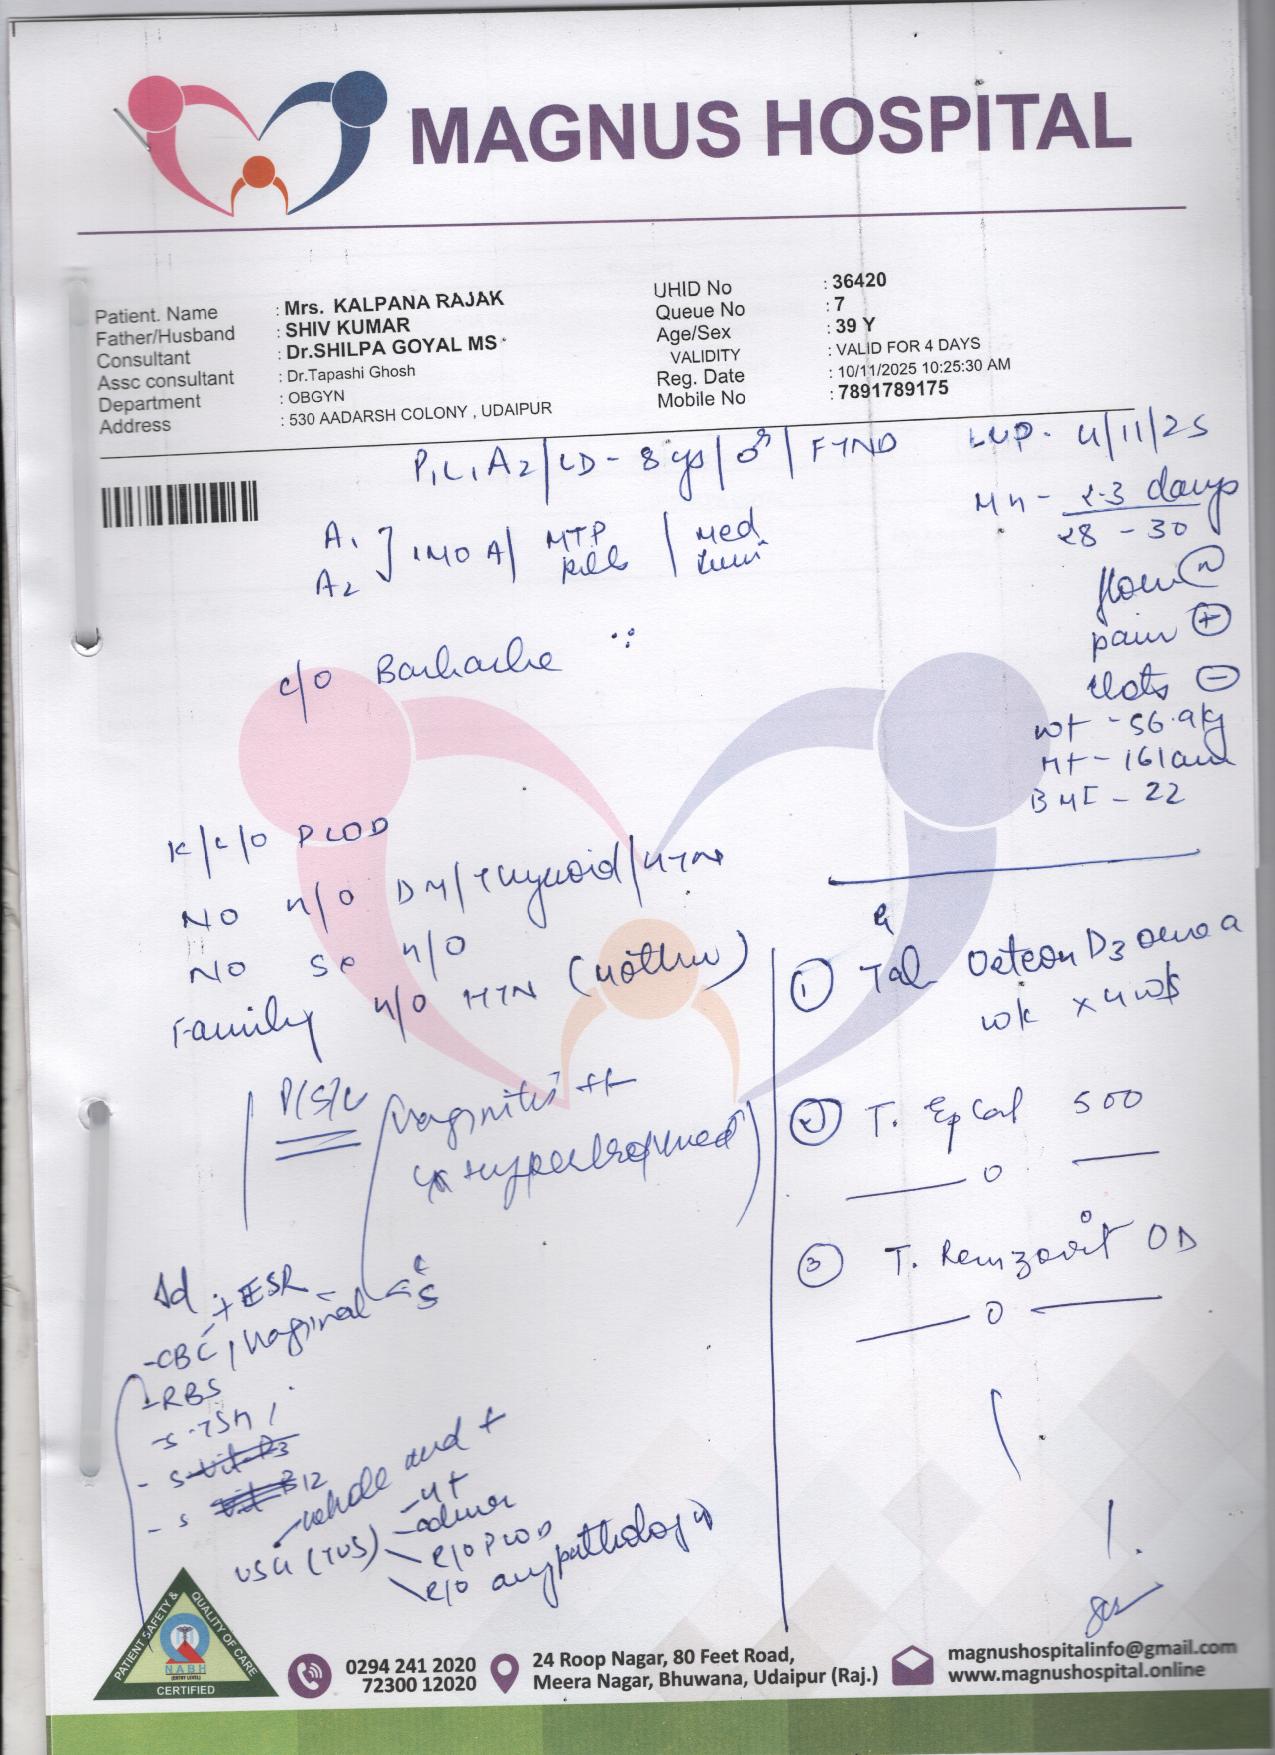 MAGNUS HOSPITAL
Patient. Name : Mrs. KALPANA RAJAK
Father/Husband : SHIV KUMAR
Consultant : Dr.SHILPA GOYAL MS
Assc consultant : Dr.Tapashi Ghosh
Department : OBGYN
Address : 530 AADARSH COLONY , UDAIPUR
UHID No : 36420
Queue No : 7
Age/Sex : 39 Y
VALIDITY : VALID FOR 4 DAYS
Reg. Date : 10/11/2025 10:25:30 AM
Mobile No : 7891789175
P1L1A2/LD - 8 ys/♂/FTND
LMP - 4/11/25
MH - 2-3 days
28 - 30
flow (N)
pain +
clots -
wt - 56.9kg
Ht - 161cm
BMI - 22
A1
A2 ] 1MOA/ MTP pills /
c/o Backache
K/C/O PCOD
NO H/O DM/Thyroid/HTN
NO Sx H/O
Family H/O HTN (Mother)
P/S/V
Vaginitis ++
Cx Hypertrophied
Ad
- CBC + ESR, Vaginal C S
- RBS
- S. TSH
- S. Vit D3
- S Vit B12
USG (TVS)
- whole abd +
- ut
- adnexa
R/O PCOD
R/O any pathology
1 Tab Osteon D3 once a
wk x 4 wks
2 T. Epcal 500
0
3 T. Remzovit OD
0
PATIENT SAFETY & QUALITY OF CARE
NABH
(ENTRY LEVEL)
CERTIFIED
0294 241 2020
72300 12020
24 Roop Nagar, 80 Feet Road,
Meera Nagar, Bhuwana, Udaipur (Raj.)
magnushospitalinfo@gmail.com
www.magnushospital.online